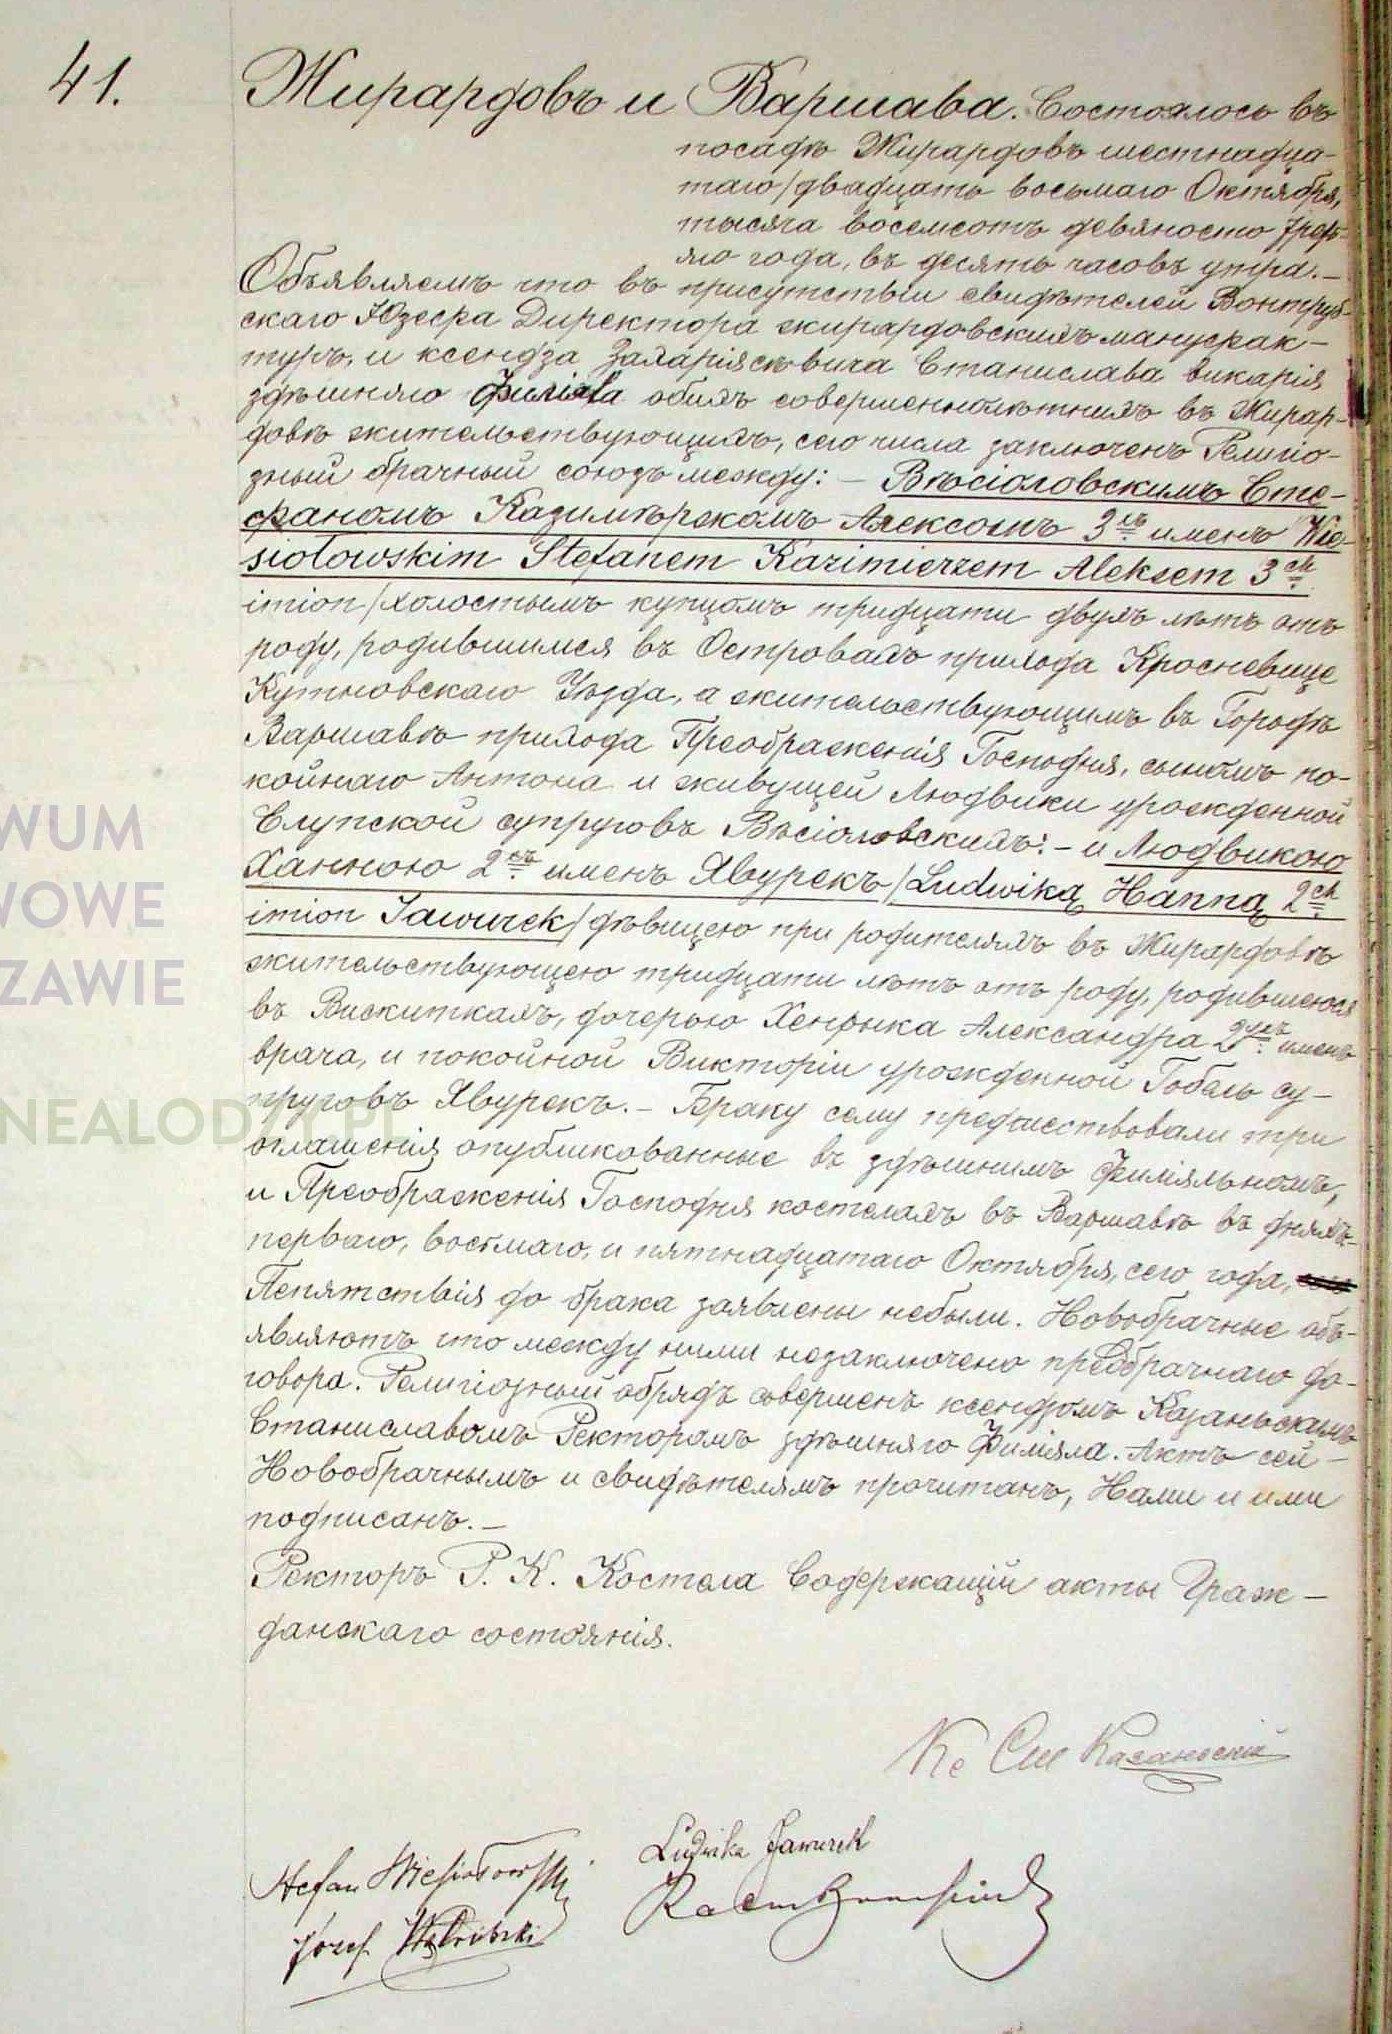 41.
Жирардовъ и Варшава. Состоялось въ
посадѣ Жирардовъ шестнадца-
таго/двадцать восьмаго Октября,
тысяча восемсотъ девяносто треть-
яго года, въ десять часовъ утра. —
Объявляемъ что въ присутствіи свидѣтелей Вонтруб-
скаго Юзефа Директора жирардовскихъ мануфак-
туръ, и ксендза Захаріясѣвича Станислава викарія
здѣшняго Филіала обихъ совершеннолѣтнихъ въ Жирар-
довѣ жительствующихъ, сего числа заключенъ Религіо-
зный брачный союзъ между: — Вѣсіоловскимъ Сте-
фаномъ Казимѣржемъ Алексомъ 3хъ именъ Wie-
siołowskim Stefanem Kazimierzem Aleksem 3ch
imion/холостымъ купцомъ тридцати двухъ лѣтъ отъ
роду, родившимся въ Островахъ прихода Кросневице
Кутновскаго Уѣзда, а жительствующимъ въ Городѣ
Варшавѣ прихода Преображенія Господня, сыномъ по-
койнаго Антона и живущей Людвики урожденной
Слупской супруговъ Вѣсіоловскихъ: — и Людвикою
Ханною 2хъ именъ Явурекъ/Ludwiką Hanną 2ch
imion Jawurek/дѣвицею при родителяхъ въ Жирардовѣ
жительствующею тридцати лѣтъ отъ роду, родившеюся
въ Вискиткахъ, дочерью Хенрыка Александра 2ухъ именъ
врача, и покойной Викторіи урожденной Гобель су-
пруговъ Явурекъ. — Браку сему предшествовали три
оглашенія опубликованные въ здѣшнимъ Филіяльномъ,
и Преображенія Господня костелахъ въ Варшавѣ въ дняхъ
перваго, восьмаго, и пятнадцатаго Октября, сего года,
Пепятствія до брака заявлены небыли. Новобрачные объ-
являютъ что между ними незаключено предбрачнаго до-
говора. Религіозный обрядъ совершенъ ксендзомъ Казаньскимъ
Станиславомъ Ректоромъ здѣшняго Филіяла. Актъ сей —
Новобрачнымъ и свидѣтелямъ прочитанъ, Нами и ими
подписанъ. —
Ректоръ Р. К. Костела Содержащій акты Граж-
данскаго состоянія.
Кс Ст Казаньскій
Stefan Wiesiołowski Ludwika Jawurek
Józef Wątróbski
WUM
WOWE
ZAWIE
NEALODZY.PL